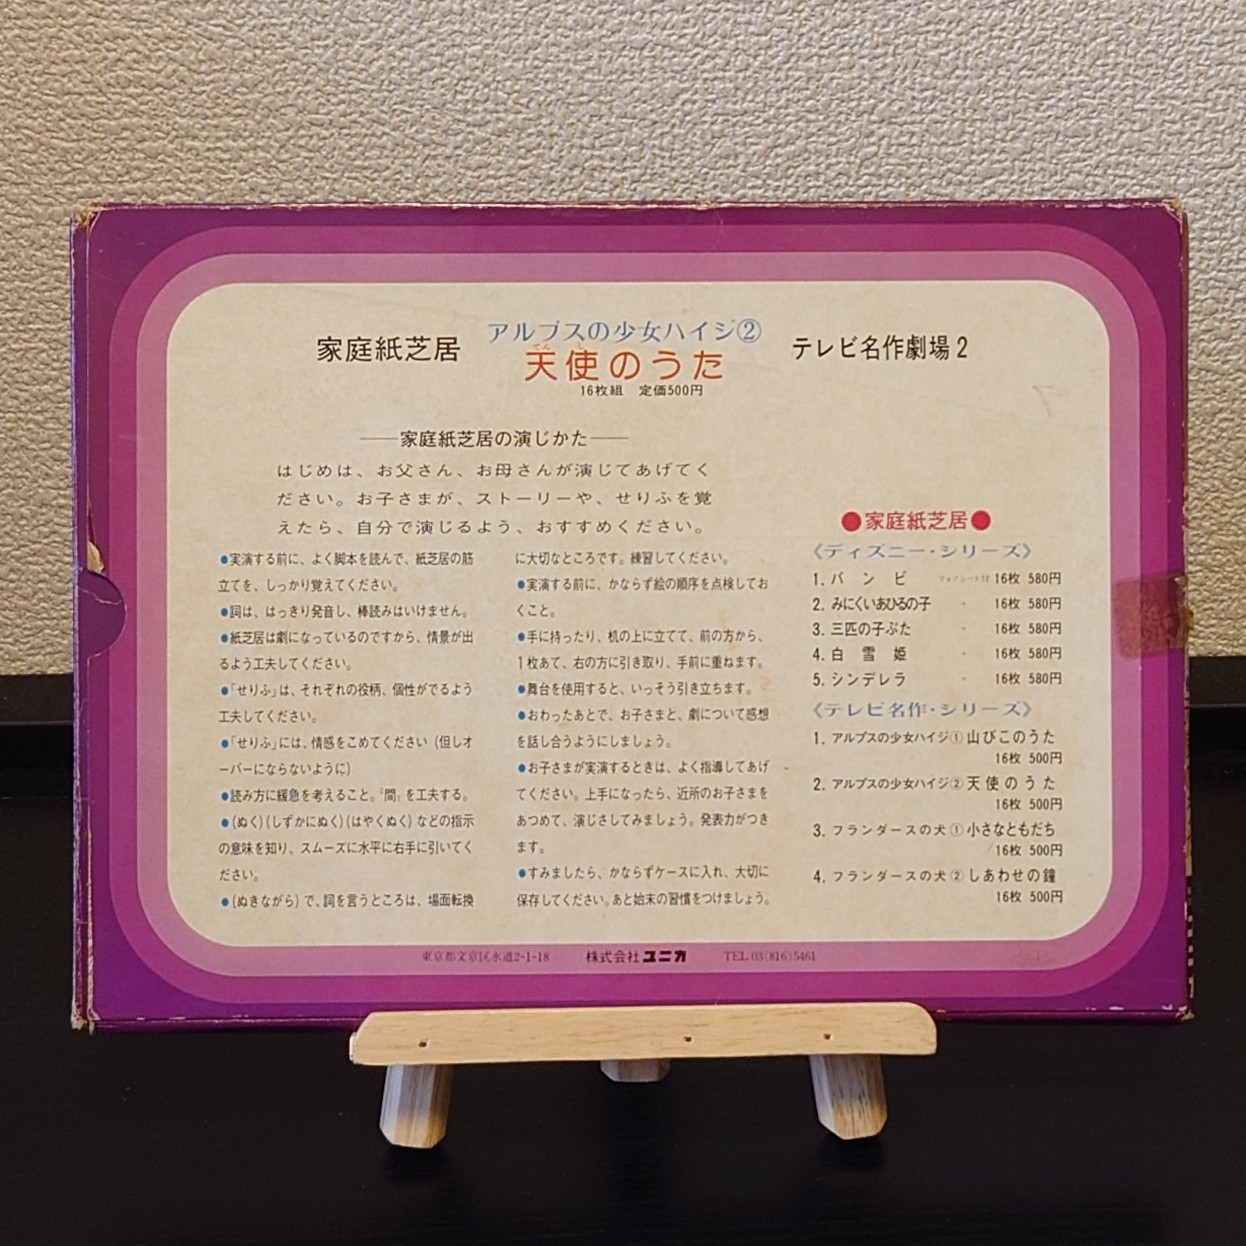 家庭紙芝居
アルプスの少女ハイジ②
天使のうた
16枚組 定価500円
テレビ名作劇場2
──家庭紙芝居の演じかた──
はじめは、お父さん、お母さんが演じてあげてく
ださい。お子さまが、ストーリーや、せりふを覚
えたら、自分で演じるよう、おすすめください。
●実演する前に、よく脚本を読んで、紙芝居の筋
立てを、しっかり覚えてください。
●詞は、はっきり発音し、棒読みはいけません。
●紙芝居は劇になっているのですから、情景が出
るよう工夫してください。
●「せりふ」は、それぞれの役柄、個性がでるよう
工夫してください。
●「せりふ」には、情感をこめてください (但しオ
ーバーにならないように)
●読み方に緩急を考えること。「間」を工夫する。
●(ぬく)(しずかにぬく)(はやくぬく) などの指示
の意味を知り、スムーズに水平に右手に引いてく
ださい。
●(ぬきながら) で、詞を言うところは、場面転換
に大切なところです。練習してください。
●実演する前に、かならず絵の順序を点検してお
くこと。
●手に持ったり、机の上に立てて、前の方から、
1枚あて、右の方に引き取り、手前に重ねます。
●舞台を使用すると、いっそう引き立ちます。
●おわったあとで、お子さまと、劇について感想
を話し合うようにしましょう。
●お子さまが実演するときは、よく指導してあげ
てください。上手になったら、近所のお子さまを
あつめて、演じさしてみましょう。発表力がつき
ます。
●すみましたら、かならずケースに入れ、大切に
保存してください。あと始末の習慣をつけましょう。
●家庭紙芝居●
《ディズニー・シリーズ》
1. バンビ フォノシート付 16枚 580円
2. みにくいあひるの子 〃 16枚 580円
3. 三匹の子ぶた 〃 16枚 580円
4. 白雪姫 〃 16枚 580円
5. シンデレラ 〃 16枚 580円
《テレビ名作・シリーズ》
1. アルプスの少女ハイジ① 山びこのうた
16枚 500円
2. アルプスの少女ハイジ② 天使のうた
16枚 500円
3. フランダースの犬① 小さなともだち
16枚 500円
4. フランダースの犬② しあわせの鐘
16枚 500円
東京都文京区水道2-1-18 株式会社ユニカ TEL 03(816)5461